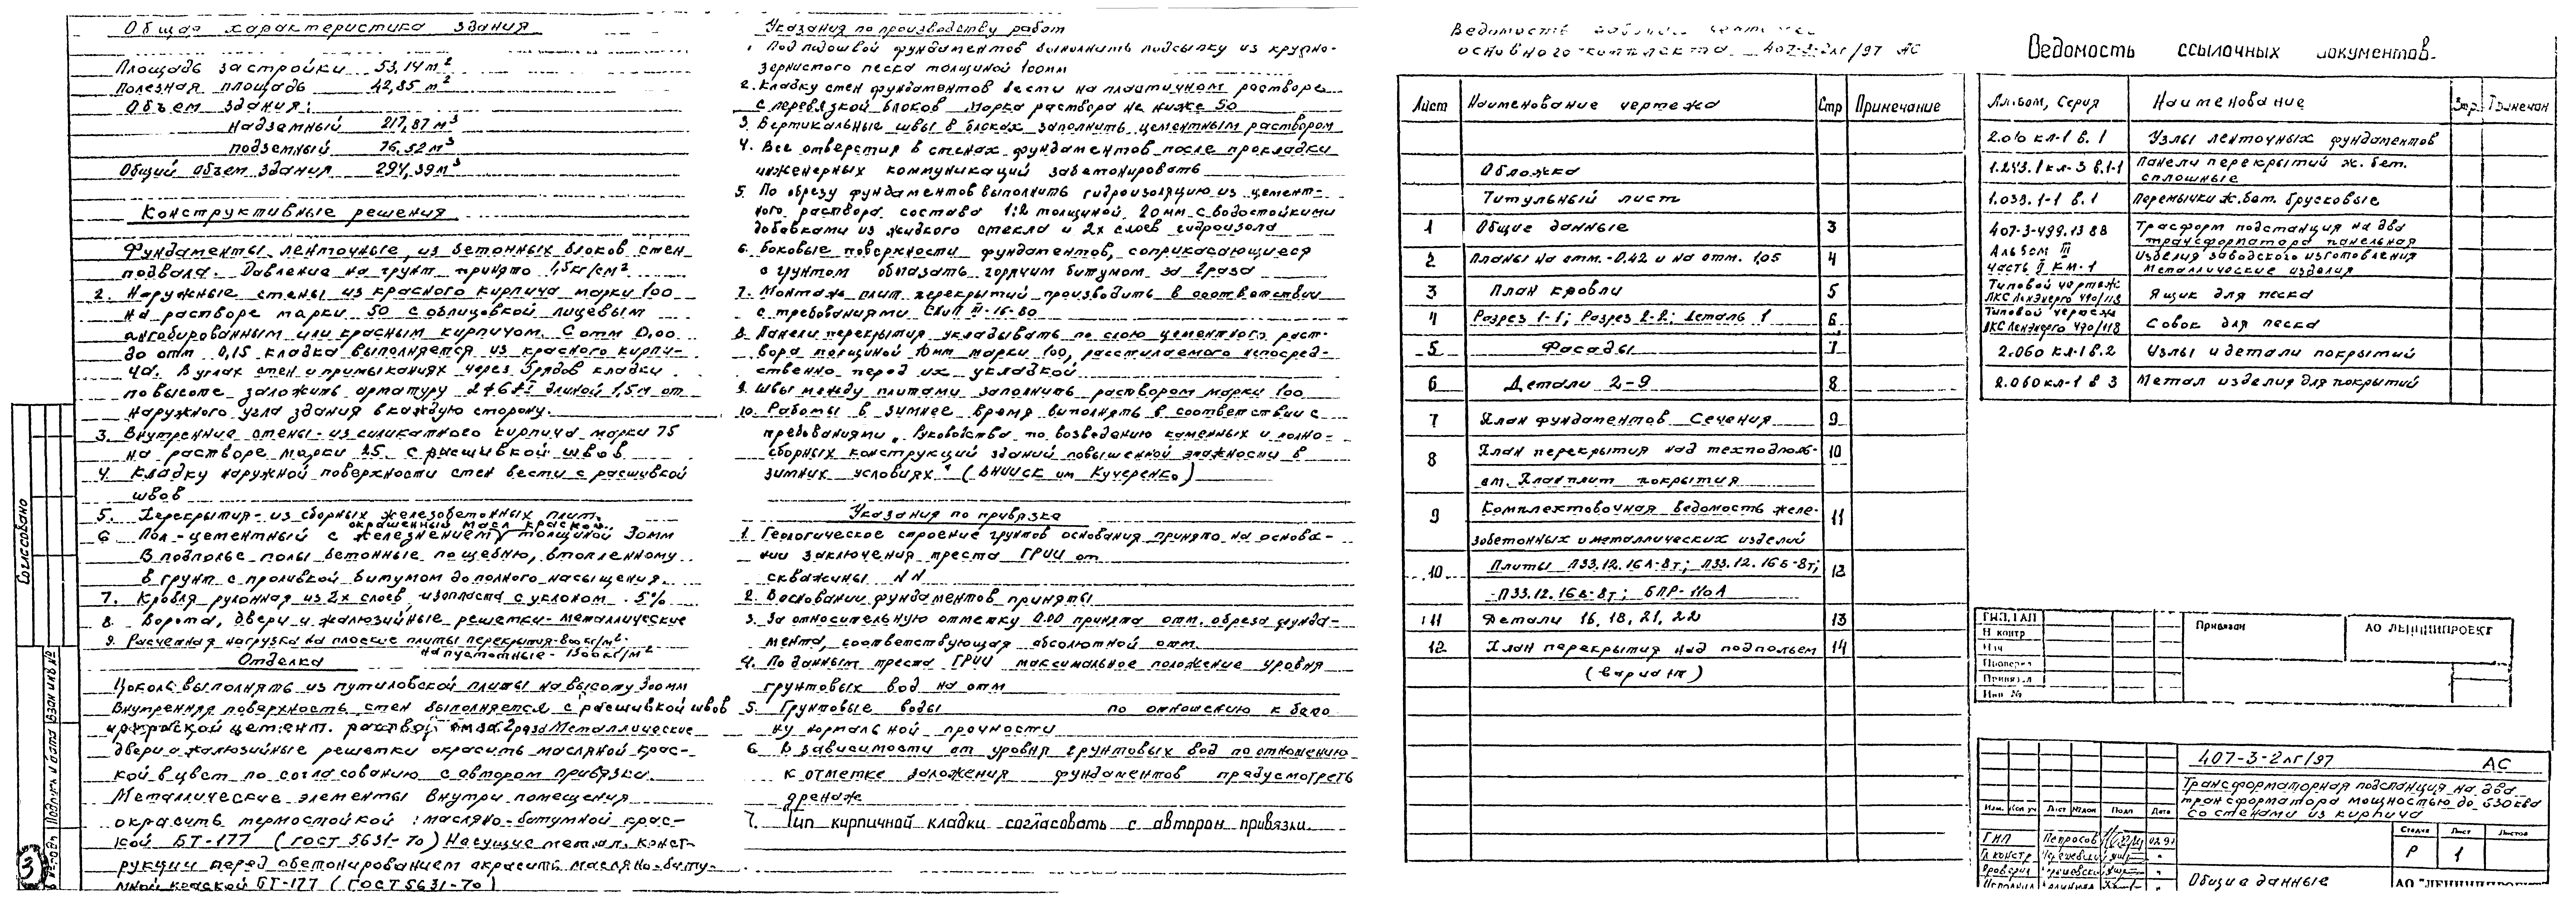 Общая характеристика здания
Площадь застройки 53,14 м²
Полезная площадь 42,85 м²
Объем здания:
надземный 217,87 м³
подземный 76,52 м³
Общий объем здания 294,39 м³
Конструктивные решения
Фундаменты ленточные, из бетонных блоков стен
подвала. Давление на грунт принято 1,5кг/см²
2. Наружные стены из красного кирпича марки 100
на растворе марки 50 с облицовкой лицевым
ангобированным или красным кирпичом. С отм 0,00
до отм 0,15 кладка выполняется из красного кирпи-
ча. В углах стен и примыканиях через 3 рядов кладки
по высоте заложить арматуру длиной 1,5м от
наружного угла здания в каждую сторону.
3. Внутренние стены- из силикатного кирпича марки 75
на растворе марки 25 с расшивкой швов
4. Кладку наружной поверхности стен вести с расшивкой
швов
5. Перекрытия- из сборных железобетонных плит.
окрашенный масл краской
6 Пол -цементный с железнением толщиной 30мм
В подполье полы бетонные по щебню, втопленному
в грунт с проливкой битумом до полного насыщения.
7. Кровля рулонная из 2х слоев изопласта с уклоном 5%
8. Ворота, двери и жалюзийные решетки- металлические
9. Расчетная нагрузка на плоские плиты перекрытия-800кг/м²
на пустотные- 1500кг/м²
Отделка
Цоколь выполнять из путиловской плиты на высоту 300мм
Внутренняя поверхность стен выполняется с расшивкой швов
цемент. за 2 раза Металлические
двери и жалюзийные решетки окрасить масляной крас-
кой в цвет по согласованию с автором привязки.
Металлические элементы внутри помещения
окрасить термостойкой масляно-битумной крас-
кой БТ-177 (ГОСТ 5631-70) Несущие метал. конст-
рукции перед обетонированием окрасить масляно-биту-
мной краской БТ-177 (ГОСТ 5631-70)
Согласовано
Подпись и дата
Взам инв №
3
Указания по производству работ
Под подошвой фундаментов выполнить подсыпку из крупно-
зернистого песка толщиной 100мм
2. Кладку стен фундаментов вести на пластичном растворе
с перевязкой блоков Марка раствора не ниже 50
3. Вертикальные швы в блоках заполнить цементным раствором
4. Все отверстия в стенах фундаментов после прокладки
инженерных коммуникаций забетонировать
5. По обрезу фундаментов выполнить гидроизоляцию из цемент-
ного раствора состава 1:2 толщиной 20мм с водостойкими
добавками из жидкого стекла и 2х слоев гидроизола
6. Боковые поверхности фундаментов, соприкасающиеся
с грунтом обмазать горячим битумом за 2 раза
7. Монтаж плит перекрытий производить в соответствии
с требованиями СНиП III-16-80
8. Панели перекрытия укладывать по слою цементного раст-
вора толщиной 10мм марки 100, расстилаемого непосред-
ственно перед их укладкой
9. Швы между плитами заполнить раствором марки 100
10. Работы в зимнее время выполнять в соответствии с
требованиями „Руководства по возведению каменных и полно-
сборных конструкций зданий повышенной этажности в
зимних условиях" (ЦНИИСК им Кучеренко)
Указания по привязке
1. Геологическое строение грунтов основания принято на основа-
нии заключения треста ГРИИ от
скважины NN
2. В основании фундаментов приняты
3. За относительную отметку 0.00 принята отм. обреза фунда-
мента, соответствующая абсолютной отм.
4. По данным треста ГРИИ максимальное положение уровня
грунтовых вод на отм
5. Грунтовые воды по отношению к бето
ну нормальной прочности
6. В зависимости от уровня грунтовых вод по отношению
к отметке заложения фундаментов предусмотреть
дренаж
7. Тип кирпичной кладки согласовать с автором привязки.
Ведомость
основного комплекта 407-3-2лг/97 АС
Лист Наименование чертежа Стр Примечание
Обложка
Титульный лист
1 Общие данные 3
2 Планы на отм.-0.42 и на отм. 1,05 4
3 План кровли 5
4 Разрез 1-1; Разрез 2-2; Деталь 1 6
5 Фасады 7
6 Детали 2-9 8
7 План фундаментов Сечения 9
8 План перекрытия над техподполь- 10
ем. План плит покрытия
9 Комплектовочная ведомость желе- 11
зобетонных и металлических изделий
10 Плиты П33.12.16А-8т; П33.12.16Б-8т; 12
П33.12.16в-8т; БПР-110А
11 Детали 16, 18, 21, 22 13
12 План перекрытия над подпольем 14
(вариант)
Ведомость ссылочных документов.
Альбом, Серия Наименование Стр. Примечан
2.010 кл-1 в. 1 Узлы ленточных фундаментов
1.243.1 кл-3 в.1-1 Панели перекрытий ж. бет.
сплошные
1.033.1-1 в. 1 Перемычки ж.бет. брусковые
407-3-499.13 88 Трасформ подстанция на два
трансформатора панельная
Альбом III изделия заводского изготовления
часть II КМ-1 Металлические изделия
Типовой чертеж
ЛКС Ленэнерго 490/113 Ящик для песка
Типовой чертеж
ЛКС Ленэнерго 490/118 Совок для песка
2.060 кл-1 в.2 Узлы и детали покрытий
2.060 кл-1 в 3 Метал изделия для покрытий
ГИП, ГАП
Н контр
Нач
Проверил
Привязал
Инв №
Привязан
АО ЛЕННИИПРОЕКТ
407-3-2лг/97 АС
Трансформаторная подстанция на два
трансформатора мощностью до 630 ква
со стенами из кирпича
Изм. Кол уч Лист №док Подп Дата
ГИП Петросов
Гл констр
Проверил
Стадия Лист Листов
Р 1
Общие данные
АО "ЛЕННИИПРОЕКТ